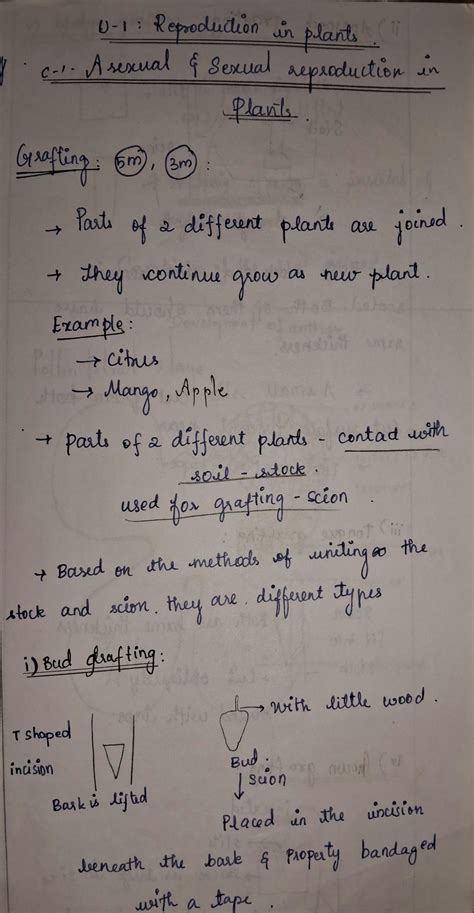 U-1: Reproduction in plants.
C-1. Asexual & Sexual reproduction in
Plants.
Grafting: (5m), (3m):
→ Parts of 2 different plants are joined.
→ They continue grow as new plant.
Example:
→ Citrus
→ Mango, Apple
→ parts of 2 different plants - contact with
soil - stock.
used for grafting - scion.
→ Based on the methods of uniting the
stock and scion. they are different types
i) Bud Grafting:
→ With little wood.
T shaped
incision
Bark is lifted
Bud:
↓ Scion
Placed in the incision
beneath the bark & Property bandaged
with a tape.